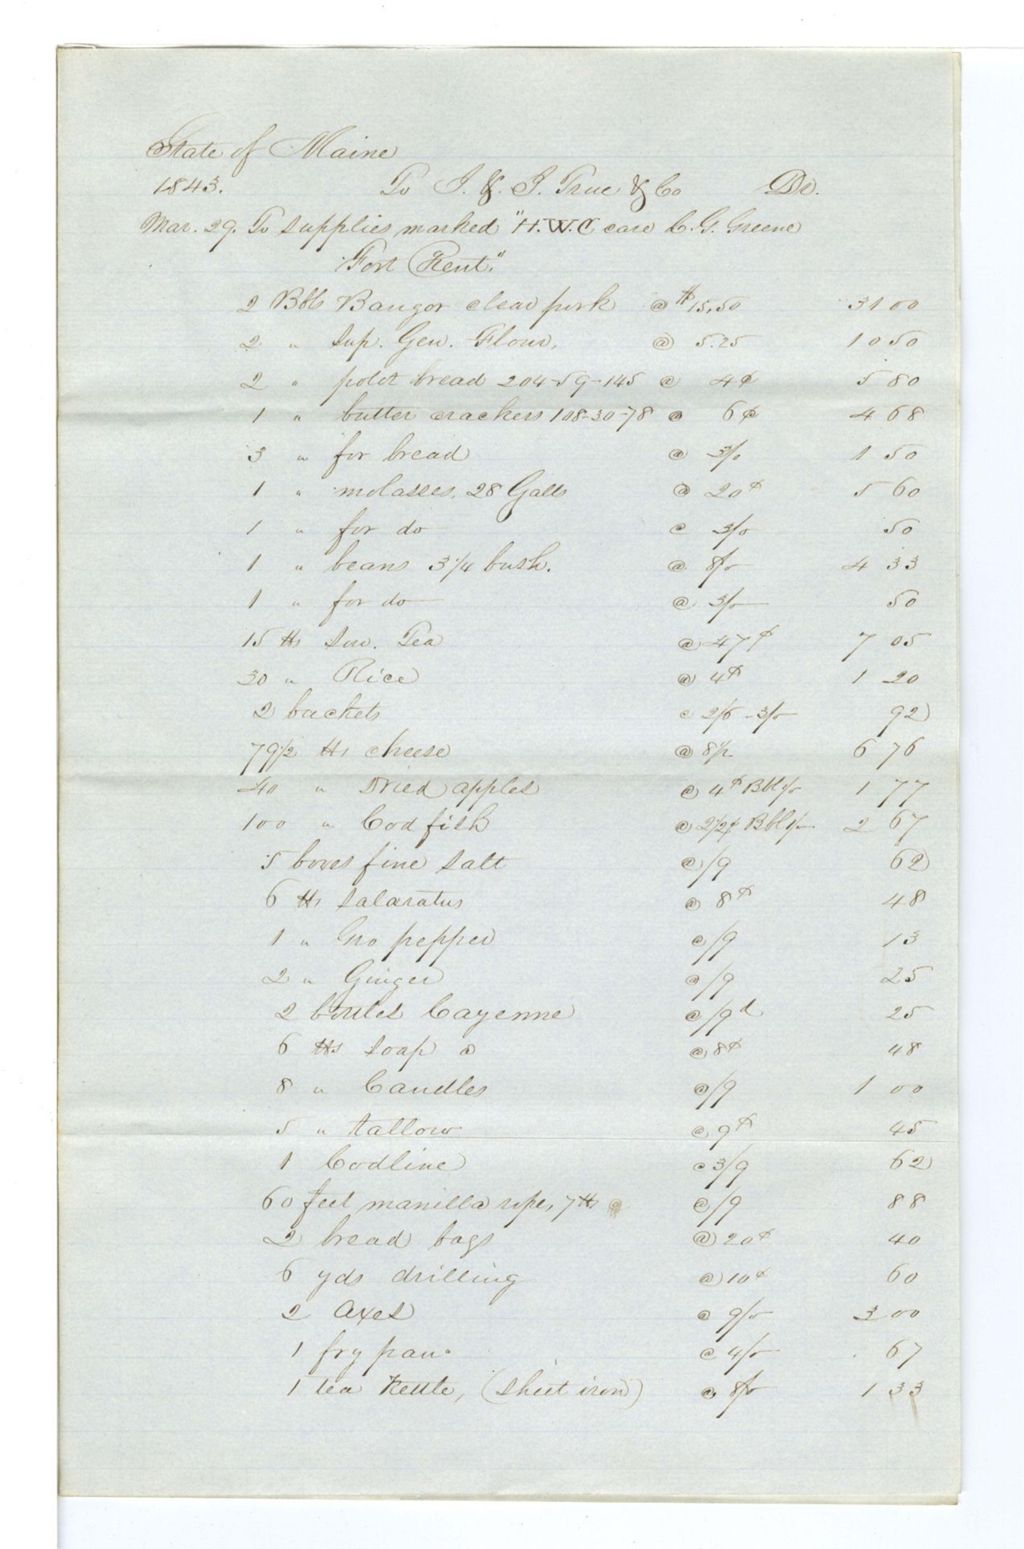 State of Maine
1843. To J. & J. True & Co Dr.
Mar. 29. To supplies marked "H.W.C care C.G. Greene
Fort Kent."
2 Bbls Bangor clear pork @ $15.50 31 00
2 " sup. Gen. Flour. @ 5.25 10 50
2 " pilot bread 204-59-145 @ 4¢ 5 80
1 " butter crackers 108-30-78 @ 6¢ 4 68
3 " for bread @ 3/ 1 50
1 " molasses, 28 Galls @ 20¢ 5 60
1 " for do @ 3/ 50
1 " beans 3 1/4 bush. @ 8/ 4 33
1 " for do @ 3/ 50
15 lbs Sou. Tea @ 47¢ 7 05
30 " Rice @ 4¢ 1 20
2 buckets @ 2/6 - 3/ 92
79 1/2 lbs cheese @ 8 1/2 6 76
40 " Dried apples @ 4¢ Bbl 1/ 1 77
100 " Cod fish @ 2 1/2¢ Bbl 1/ 2 67
5 boxes fine salt @ /9 62
6 lbs salaratus @ 8¢ 48
1 " Gro pepper @ /9 13
2 " Ginger @ /9 25
2 bottles Cayenne @ /9d 25
6 lbs soap @ @ 8¢ 48
8 " Candles @ /9 1 00
5 " tallow @ 9¢ 45
1 Codline @ 3/9 62
60 feet manilla rope, 7 lbs @ @ /9 88
2 bread bags @ 20¢ 40
6 yds drilling @ 10¢ 60
2 Axes @ 9/ 3 00
1 fry pan @ 4/ 67
1 tea Kettle, (sheet iron) @ 8/ 1 33